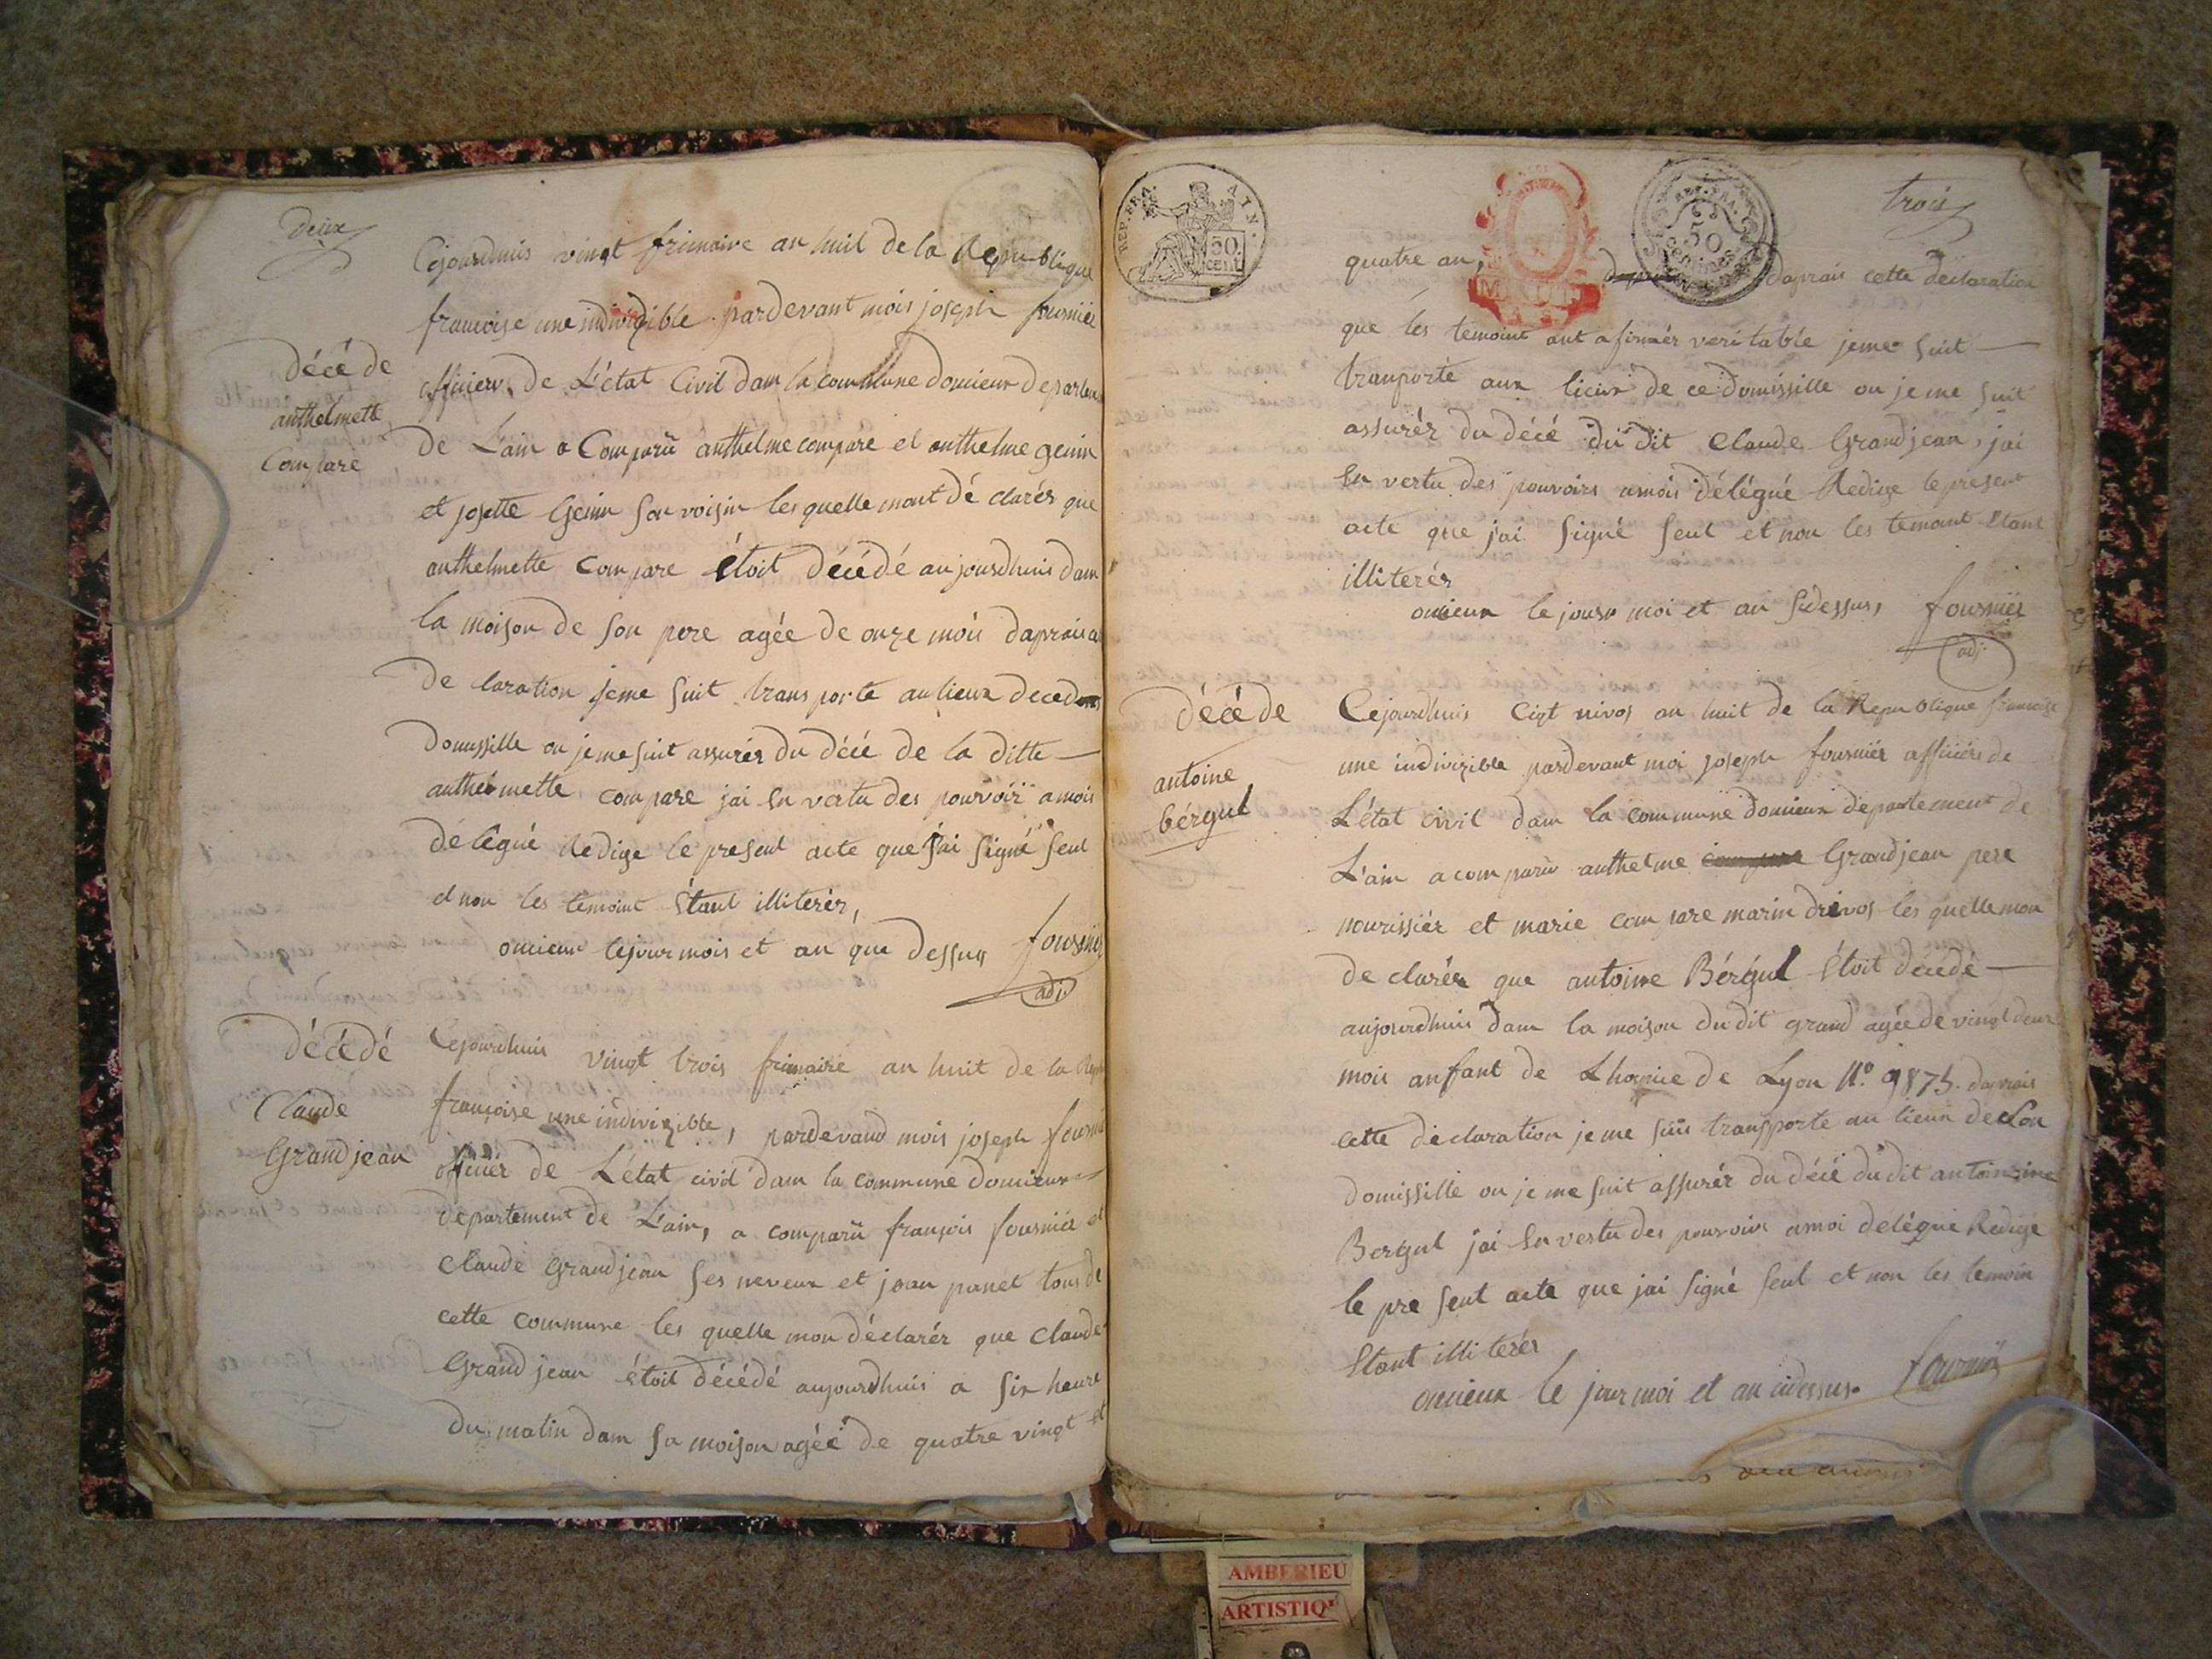 deux
Cejourdhuis vingt frimaire an huit de la Republique
francoise une indivizible pardevant mois joseph fournier
officiers de L'état Civil dam la commune domieux departem
décé de
anthelmette
Compare
de L'ain a Comparü anthelme compare et anthelme genin
et josette Genin son voisin les quelle mont dé clarér que
anthelmette compare étoit décédé aujourdhuis dam
la moison de son pere agée de onze mois daprais a
de claration jeme suit transporte au lieux decedons
domissille ou je me suit assurér du décé de la ditte
anthelmette compare jai en vertu des pourvoir amois
délégué Redige le present acte que jai signé seul
et non les temoint étant illiterér,
omieux lejour mois et an que dessus fournier
adj.
décédé
Claude
Grandjean
Cejourdhuis vingt trois frimaire an huit de la Repu
françoise une indivizible, pardevand mois joseph fournie
officiér de L'état civil dam la commune domieux
departement de L'ain, a comparü françois fournier et
Claude Grandjean ses neveux et jean panet tous de
cette commune les quelle mon déclarér que Claude
Grandjean étoit décédé aujourdhuis a six heure
du matin dam sa moison agéé de quatre vingt et
REP. FRA. AIN.
50.
cent.
REP. FRA.
50
centimes
trois
quatre an, daprais cette declaration
que les temoint ont afirmér veritable jeme suit
tranporté aux licux de ce domissille ou je me suit
assurér du décé du dit Claude Grandjean, jai
en vertu des pouvoirs amois délégué Redige le present
acte que jai signé seul et non les temoint Etant
illiterér
omieux le jour moi et an sidessus, fournier
adj.
décéde
antoine
bérgul
Cejourdhuis Cigt nivos an huit de la Republique francoise
une indivizible pardevant moi joseph fournier afficiér de
L'état civil dam la commune domieux departement de
L'ain a comparü anthelme compare Grandjean pere
nourissiér et marie compare marin drivos les quelle mon
de clarér que antoine Bérgul étoit décédé
aujourdhuis dam la moison du dit grand agée de vingt deux
mois anfant de Lhospice de Lyon N.º 9875. daprais
cette déclaration je me suis transporte au lieux de son
domissille ou je me suit assurér du décé du dit antoine
Bergul jai en vertu des pourvoir amoi delégué Redige
le present acte que jai signé seul et non les temoin
Etant illiterér
omieux le jour moi et an cidessus. fournier
AMBERIEU
ARTISTIQ'